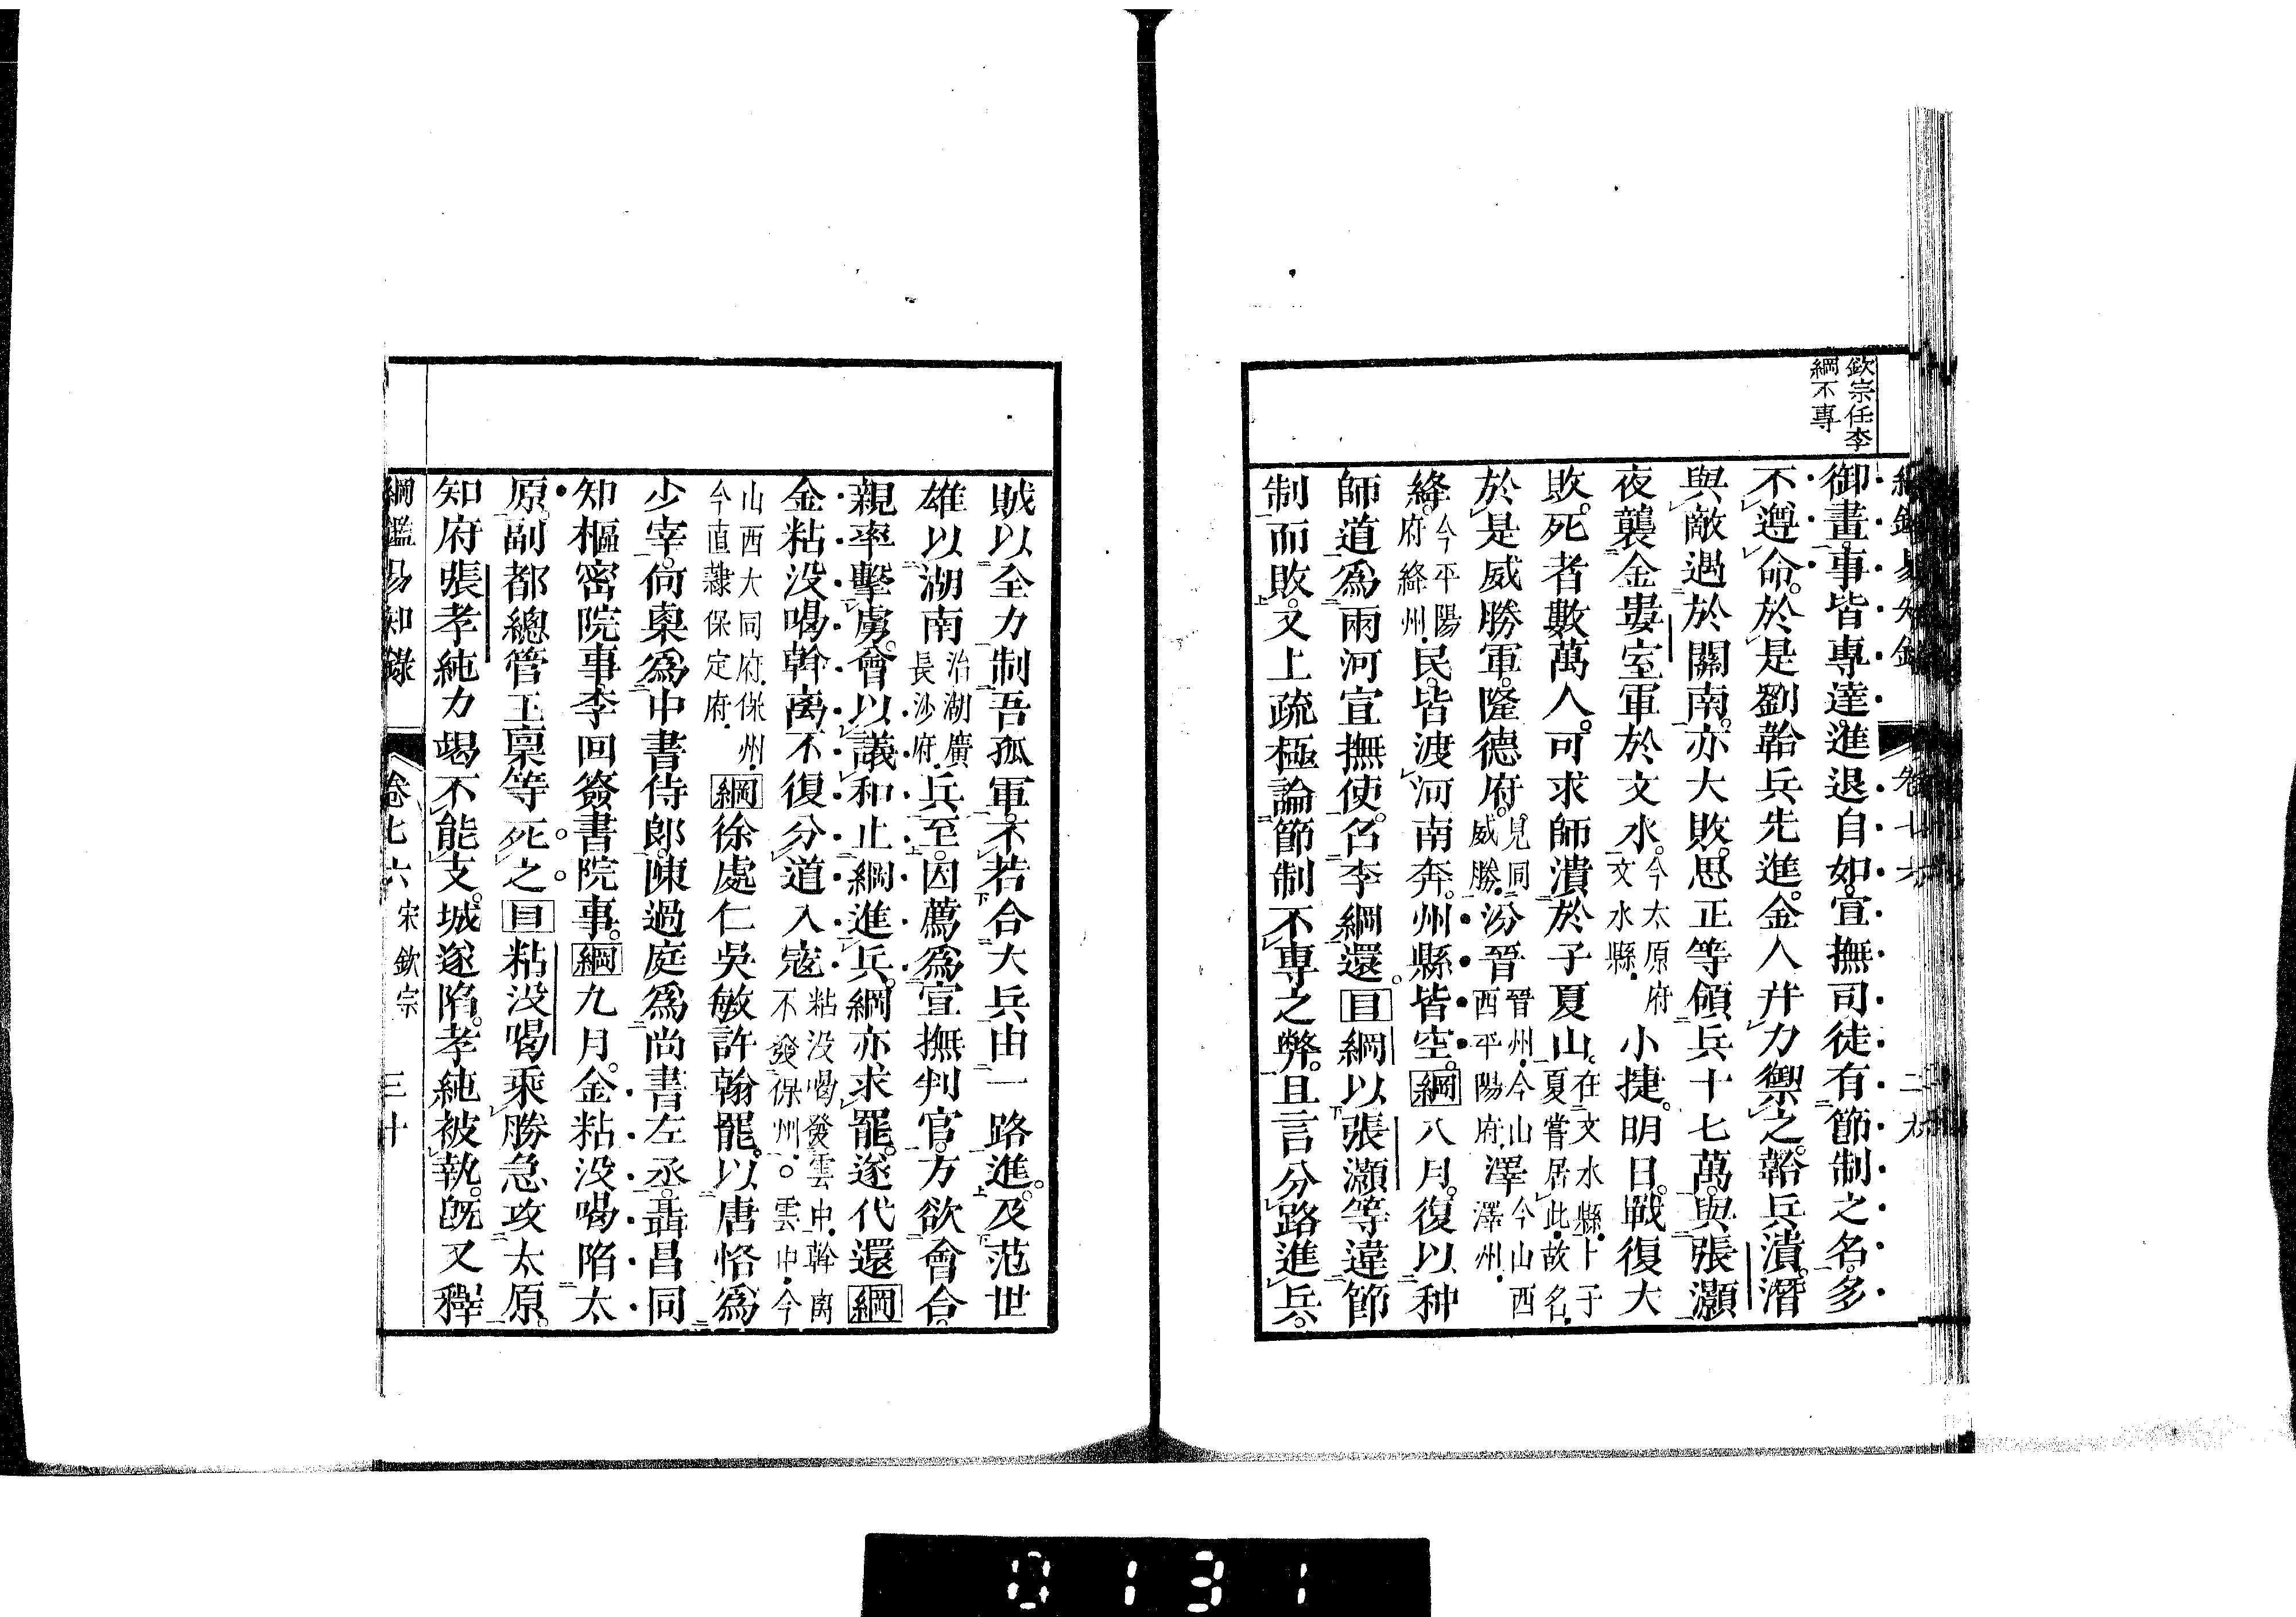 欽宗任李
綱不專
御畫。事皆專達。進退自如。宣撫司徒有節制之名。多
不遵命。於是劉韐兵先進。金人幷力禦之。韐兵潰。潛
與敵遇於關南。亦大敗。思正等領兵十七萬。與張灝
夜襲金婁室軍於文水。今太原府文水縣.小捷。明日。戰復大
敗。死者數萬人。可求師潰於子夏山。在文水縣.卜子夏嘗居此.故名.
於是威勝軍。隆德府。見同威勝.汾晉晉州.今山西平陽府.澤今山西澤州.
絳今平陽府絳州.民皆渡河南奔。州縣皆空。綱八月。復以种
師道爲兩河宣撫使。召李綱還。目綱以張灝等違節
制而敗。又上疏極論節制不專之弊。且言分路進兵。
賊以全力制吾孤軍。不若合大兵由一路進。及范世
雄以湖南治湖廣長沙府.兵至。因薦爲宣撫判官。方欲會合。
親率擊虜。會以議和止綱進兵。綱亦求罷。遂代還綱
金粘没喝斡离不復分道入寇粘没喝發雲中.斡离不發保州.。雲中.今
山西大同府.保州.今直隷保定府.綱徐處仁吳敏許翰罷。以唐恪爲
少宰。何㮚爲中書侍郎。陳過庭爲尚書左丞。聶昌同
知樞密院事。李回簽書院事。綱九月。金粘没喝陷太
原。副都總管王稟等死之。目粘没喝乘勝急攻太原。
知府張孝純力竭不能支。城遂陷。孝純被執。旣又釋
綱鑑易知錄 卷七六 宋欽宗 三十
0131